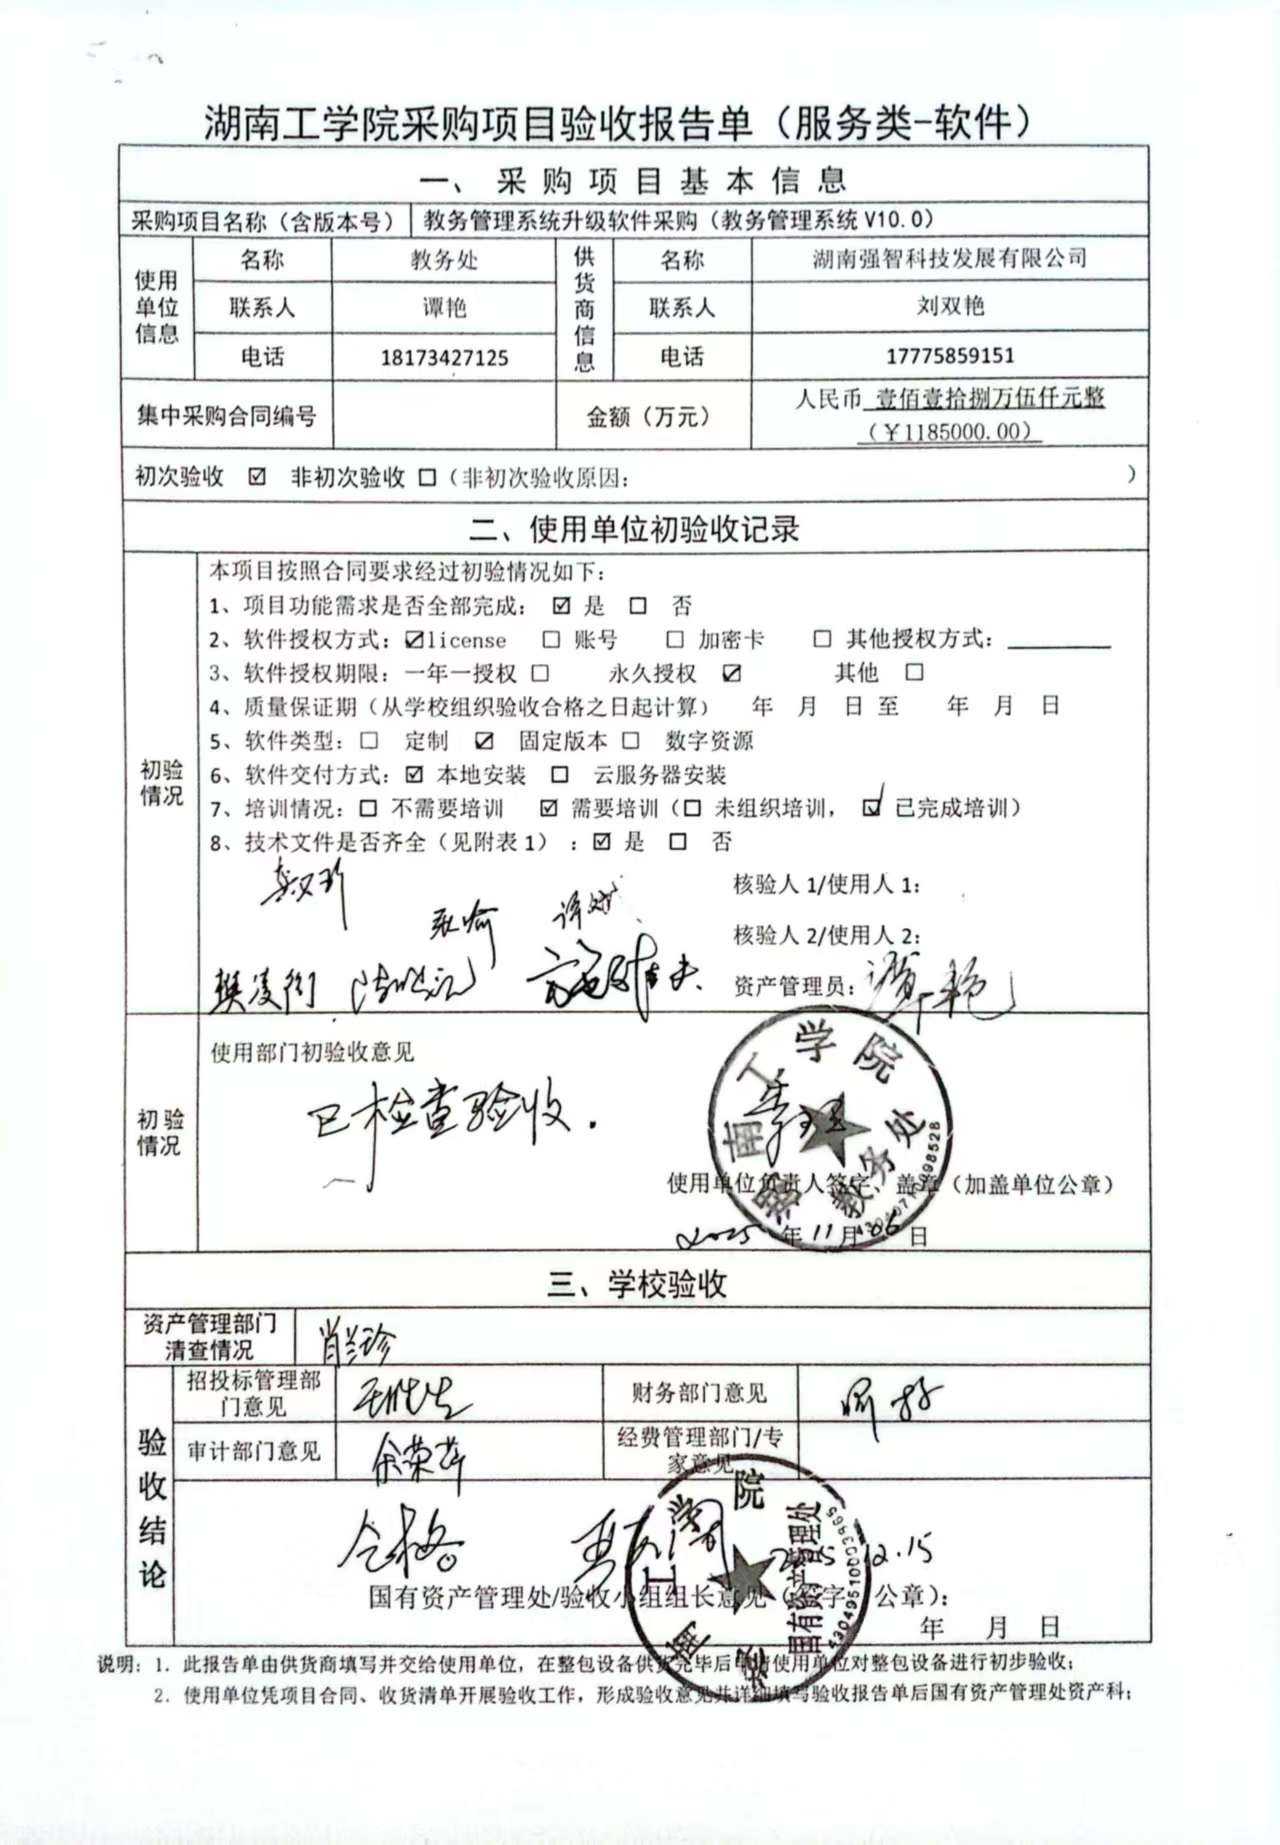 湖南工学院采购项目验收报告单（服务类-软件）
一、采购项目基本信息
采购项目名称（含版本号） 教务管理系统升级软件采购（教务管理系统V10.0）
使用单位信息 名称 教务处 供货商信息 名称 湖南强智科技发展有限公司
联系人 谭艳 联系人 刘双艳
电话 18173427125 电话 17775859151
集中采购合同编号 金额（万元） 人民币 壹佰壹拾捌万伍仟元整
（￥1185000.00）
初次验收 ☑ 非初次验收 □（非初次验收原因： ）
二、使用单位初验收记录
初验情况
本项目按照合同要求经过初验情况如下：
1、项目功能需求是否全部完成： ☑ 是 □ 否
2、软件授权方式：☑license □ 账号 □ 加密卡 □ 其他授权方式：
3、软件授权期限：一年一授权 □ 永久授权 ☑ 其他 □
4、质量保证期（从学校组织验收合格之日起计算） 年 月 日 至 年 月 日
5、软件类型：□ 定制 ☑ 固定版本 □ 数字资源
6、软件交付方式：☑ 本地安装 □ 云服务器安装
7、培训情况：□ 不需要培训 ☑ 需要培训（□ 未组织培训， ☑ 已完成培训）
8、技术文件是否齐全（见附表1）：☑ 是 □ 否
核验人1/使用人1：
核验人2/使用人2：
樊凌衔
资产管理员：谭艳
初验情况
使用部门初验收意见
已检查验收.
湖南工学院 教务处
使用单位负责人签字、盖章（加盖单位公章）
2025年11月06日
三、学校验收
资产管理部门清查情况 肖兰珍
验收结论
招投标管理部门意见 财务部门意见
审计部门意见 余荣萍 经费管理部门/专家意见
合格。 2025.12.15
湖南工学院 国有资产管理处 4304951003965
国有资产管理处/验收小组组长意见（签字、公章）：
年 月 日
说明：1. 此报告单由供货商填写并交给使用单位，在整包设备供货完毕后申请使用单位对整包设备进行初步验收；
2. 使用单位凭项目合同、收货清单开展验收工作，形成验收意见并详细填写验收报告单后国有资产管理处资产科；